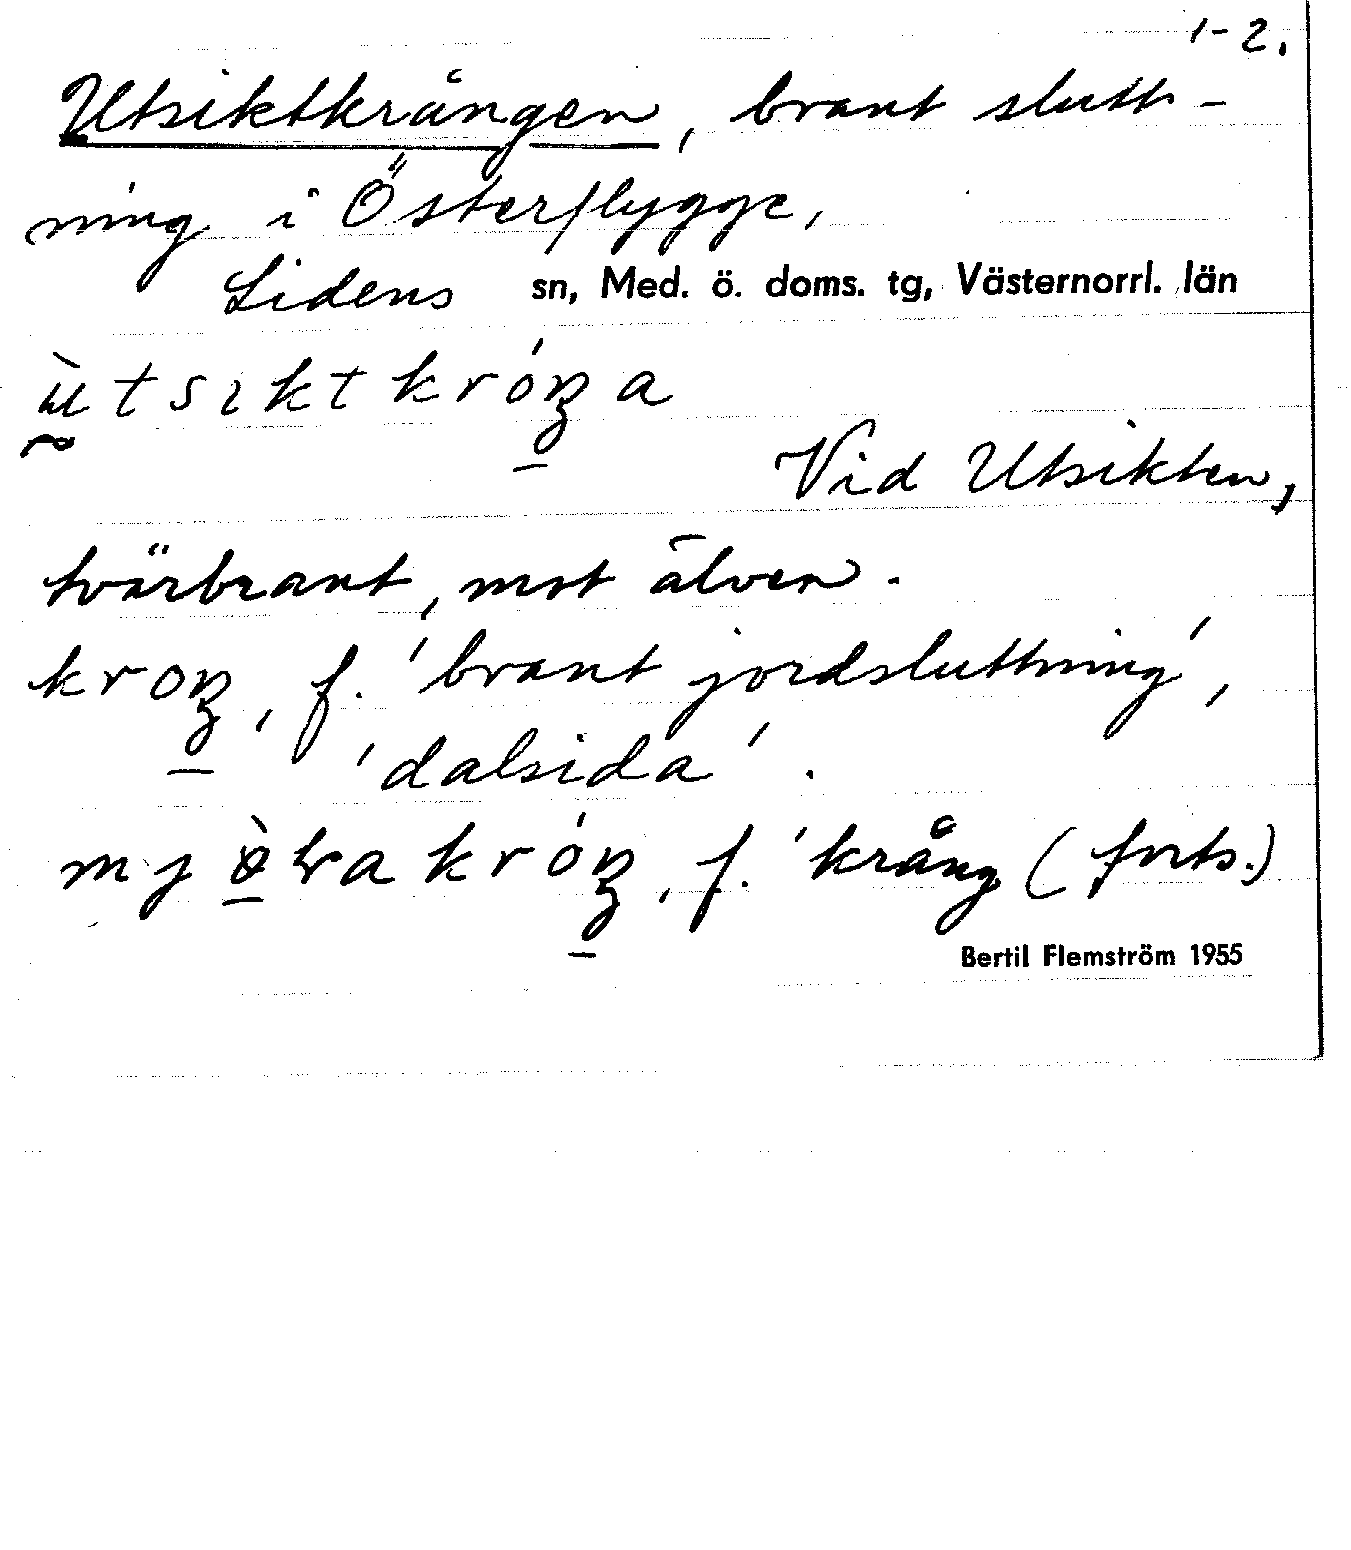 1-2.
Utsiktkrången, brant slutt-
ning i Österflygge,
Lidens sn, Med. ö. doms. tg, Västernorrl. län
ṵ̀tsiktkróŋ̱a
Vid Utsikten,
tvärbrant, mot älven.
kroŋ̱, f. 'brant jordsluttning',
'dalsida'.
f. 'krång (forts.)
Bertil Flemström 1955